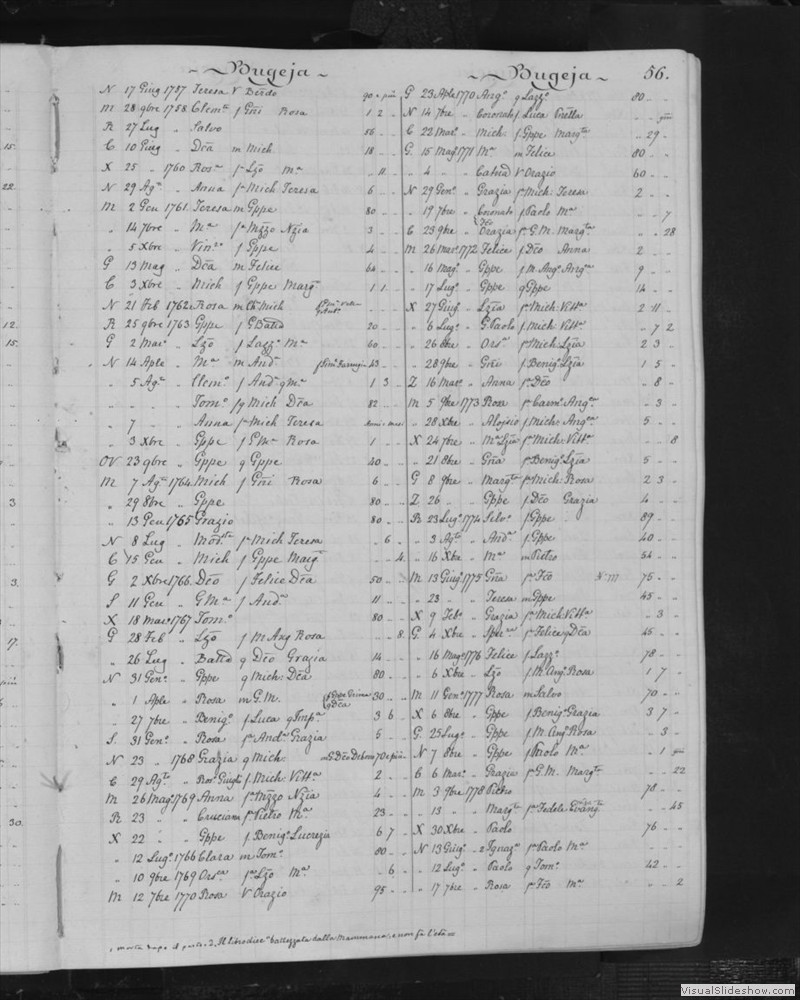 Bugeja
N 17 Giug 1757 Teresa V Berdo 90 e più
M 28 9bre 1758 Clem.e f Gñi Rosa 1 2
R 27 Lug " Salvo 56
C 10 Giug " Dĉa m Mich 18
X 25 " 1760 Ros.a f Lzo M.a 11
N 29 Ag.o " Anna f Mich Teresa 6
M 2 Gen 1761 Teresa m Gppe 80
" 14 7bre " M.a f Mzzo Nzia 3
" 5 Xbre " Vin.o f Gppe 4
G 13 Mag " Dĉa m Felice 64
C 3 Xbre " Mich f Gppe Marg.a 1 1
N 21 Feb 1762 Rosa m Mich
R 25 9bre 1763 Gppe f GBatta 20
G 2 Mar " Lzo f Lazz.o M.a 60
N 14 Aple " M.a m And.a 43
" 5 Ag.o " Clem.o f And.a q M.a 1 3
" " " Tom.o f q Mich Dĉa 82
" 7 " Anna f Mich Teresa
" 3 Xbre " Gppe f G M.a Rosa 1
OV 23 9bre " Gppe q Gppe 40
M 7 Ag.o 1764 Mich f Gñi Rosa 6
" 29 8bre " Gppe 80
" 13 Gen 1765 Grazio 80
N 8 Lug " Mod.tto f Mich Teresa 6
C 15 Gen " Mich f Gppe Marg.a 4
G 2 Xbre 1766 Dĉo f Felice Dĉa 50
S 11 Gen " G M.a f And.a 11
X 18 Mar 1767 Tom.o 80
G 28 Feb " Lzo f M Ang Rosa 8
" 26 Lug " Batta q Dĉo Grazia 14
N 31 Gen " Gppe q Mich Dĉa 80
" 1 Aple " Rosa m G.M. 30
" 27 7bre " Benig.o f Luca q Imp.a 3 6
S 31 Gen.o " Rosa f And.a Grazia 5
N 23 " 1768 Grazia q Mich 70 e più
C 29 Ag.to " Ros. Giugl f Mich Vitt.a 2
M 26 Mag 1769 Anna f Mzzo Nzia 4
R 23 " " Cruciana f Pietro M.a 23
X 22 " " Gppe f Benig.o Lucrezia 6 7
" 12 Lug.o 1766 Clara m Tom.o 80
" 10 9bre 1769 Ors.ca f Lzo M.a 6
M 12 7bre 1770 Rosa V Orazio 95
Bugeja 56.
G 23 Aple 1770 Ang.o q Lazz.o 80
N 14 7bre " Coronato f Luca
C 22 Mar.o " Mich f Gppe Marg.ta 29
G 15 Mag.o 1771 M.a m Felice 80
" 4 " " Catrid V Orazio 60
N 29 Gen.o " Grazia f Mich Teresa 2
" 19 7bre " Coronato f Paolo M.a 7
C 23 9bre " Grazia f G.M. Marg.ta 28
M 26 Mar.o 1772 Felice f Dĉo Anna 2
" 16 Mag.o " Gppe f M. Ang.o Ang.ca 9
" 17 Lug.o " Gppe q Gppe 14
X 27 Giug.o " Lzia f Mich Vitt.a 2 11
" 6 Lug.o " G.Paolo f Mich Vitt.a 7 2
" 26 8bre " Ors.a f Mich Lzia 2 3
" 28 9bre " Gñi f Benig.o Lzia 1 5
Z 16 Mar.o " Anna f Dĉo 8
M 5 9bre 1773 Rosa f Carm.o Ang.ca 3
" 28 Xbre " Aloisio f Mich Ang.ca 5
X 24 7bre " M.a Lzia f Mich Vitt.a 8
" 21 8bre " Gña f Benig.o Lzia 5
G 8 9bre " Marg.ta f Mich Rosa 2 3
Z 26 " " Gppe f Dĉo Grazia 4
R 23 Lug.o 1774 Salv.o f Gppe 89
" 3 Ag.to " And.a f Gppe 40
" 16 Xbre " M.a m Pietro 54
M 13 Giug.o 1775 Gña f Fco 75
" 23 " " Teresa m Gppe 45
X 9 Feb.o " Grazia f Mich Vitt.a 3
G 4 Xbre " Sper.a f Felice q Dĉa 45
" 16 Mag.o 1776 Felice f Lazz.o 78
" 6 Xbre " Lzo f M. Ang.o Rosa 1 7
M 11 Gen.o 1777 Rosa m Salvo 70
X 6 8bre " Gppe f Benig.o Grazia 3 7
G 25 Lug.o " Gppe f M. Ang.o Rosa 3
N 7 8bre " Gppe f Paolo M.a 1
C 6 Mar.o " Grazia f G.M. Marg.ta 22
M 3 9bre 1778 Pietro 78
" 13 " " Marg.ta f Fedele 45
X 30 Xbre " Paolo 76
N 13 Giug.o " 2 Ignaz.o f Paolo M.a
" 12 Lug.o " Paolo q Tom.o 42
" 17 7bre " Rosa f Fco M.a 2
1, morta dopo il parto. 2, battezzata dalla Mammana, e non fà l'età
15.
22.
12.
15.
3
3.
17.
30.
VisualSlideshow.com